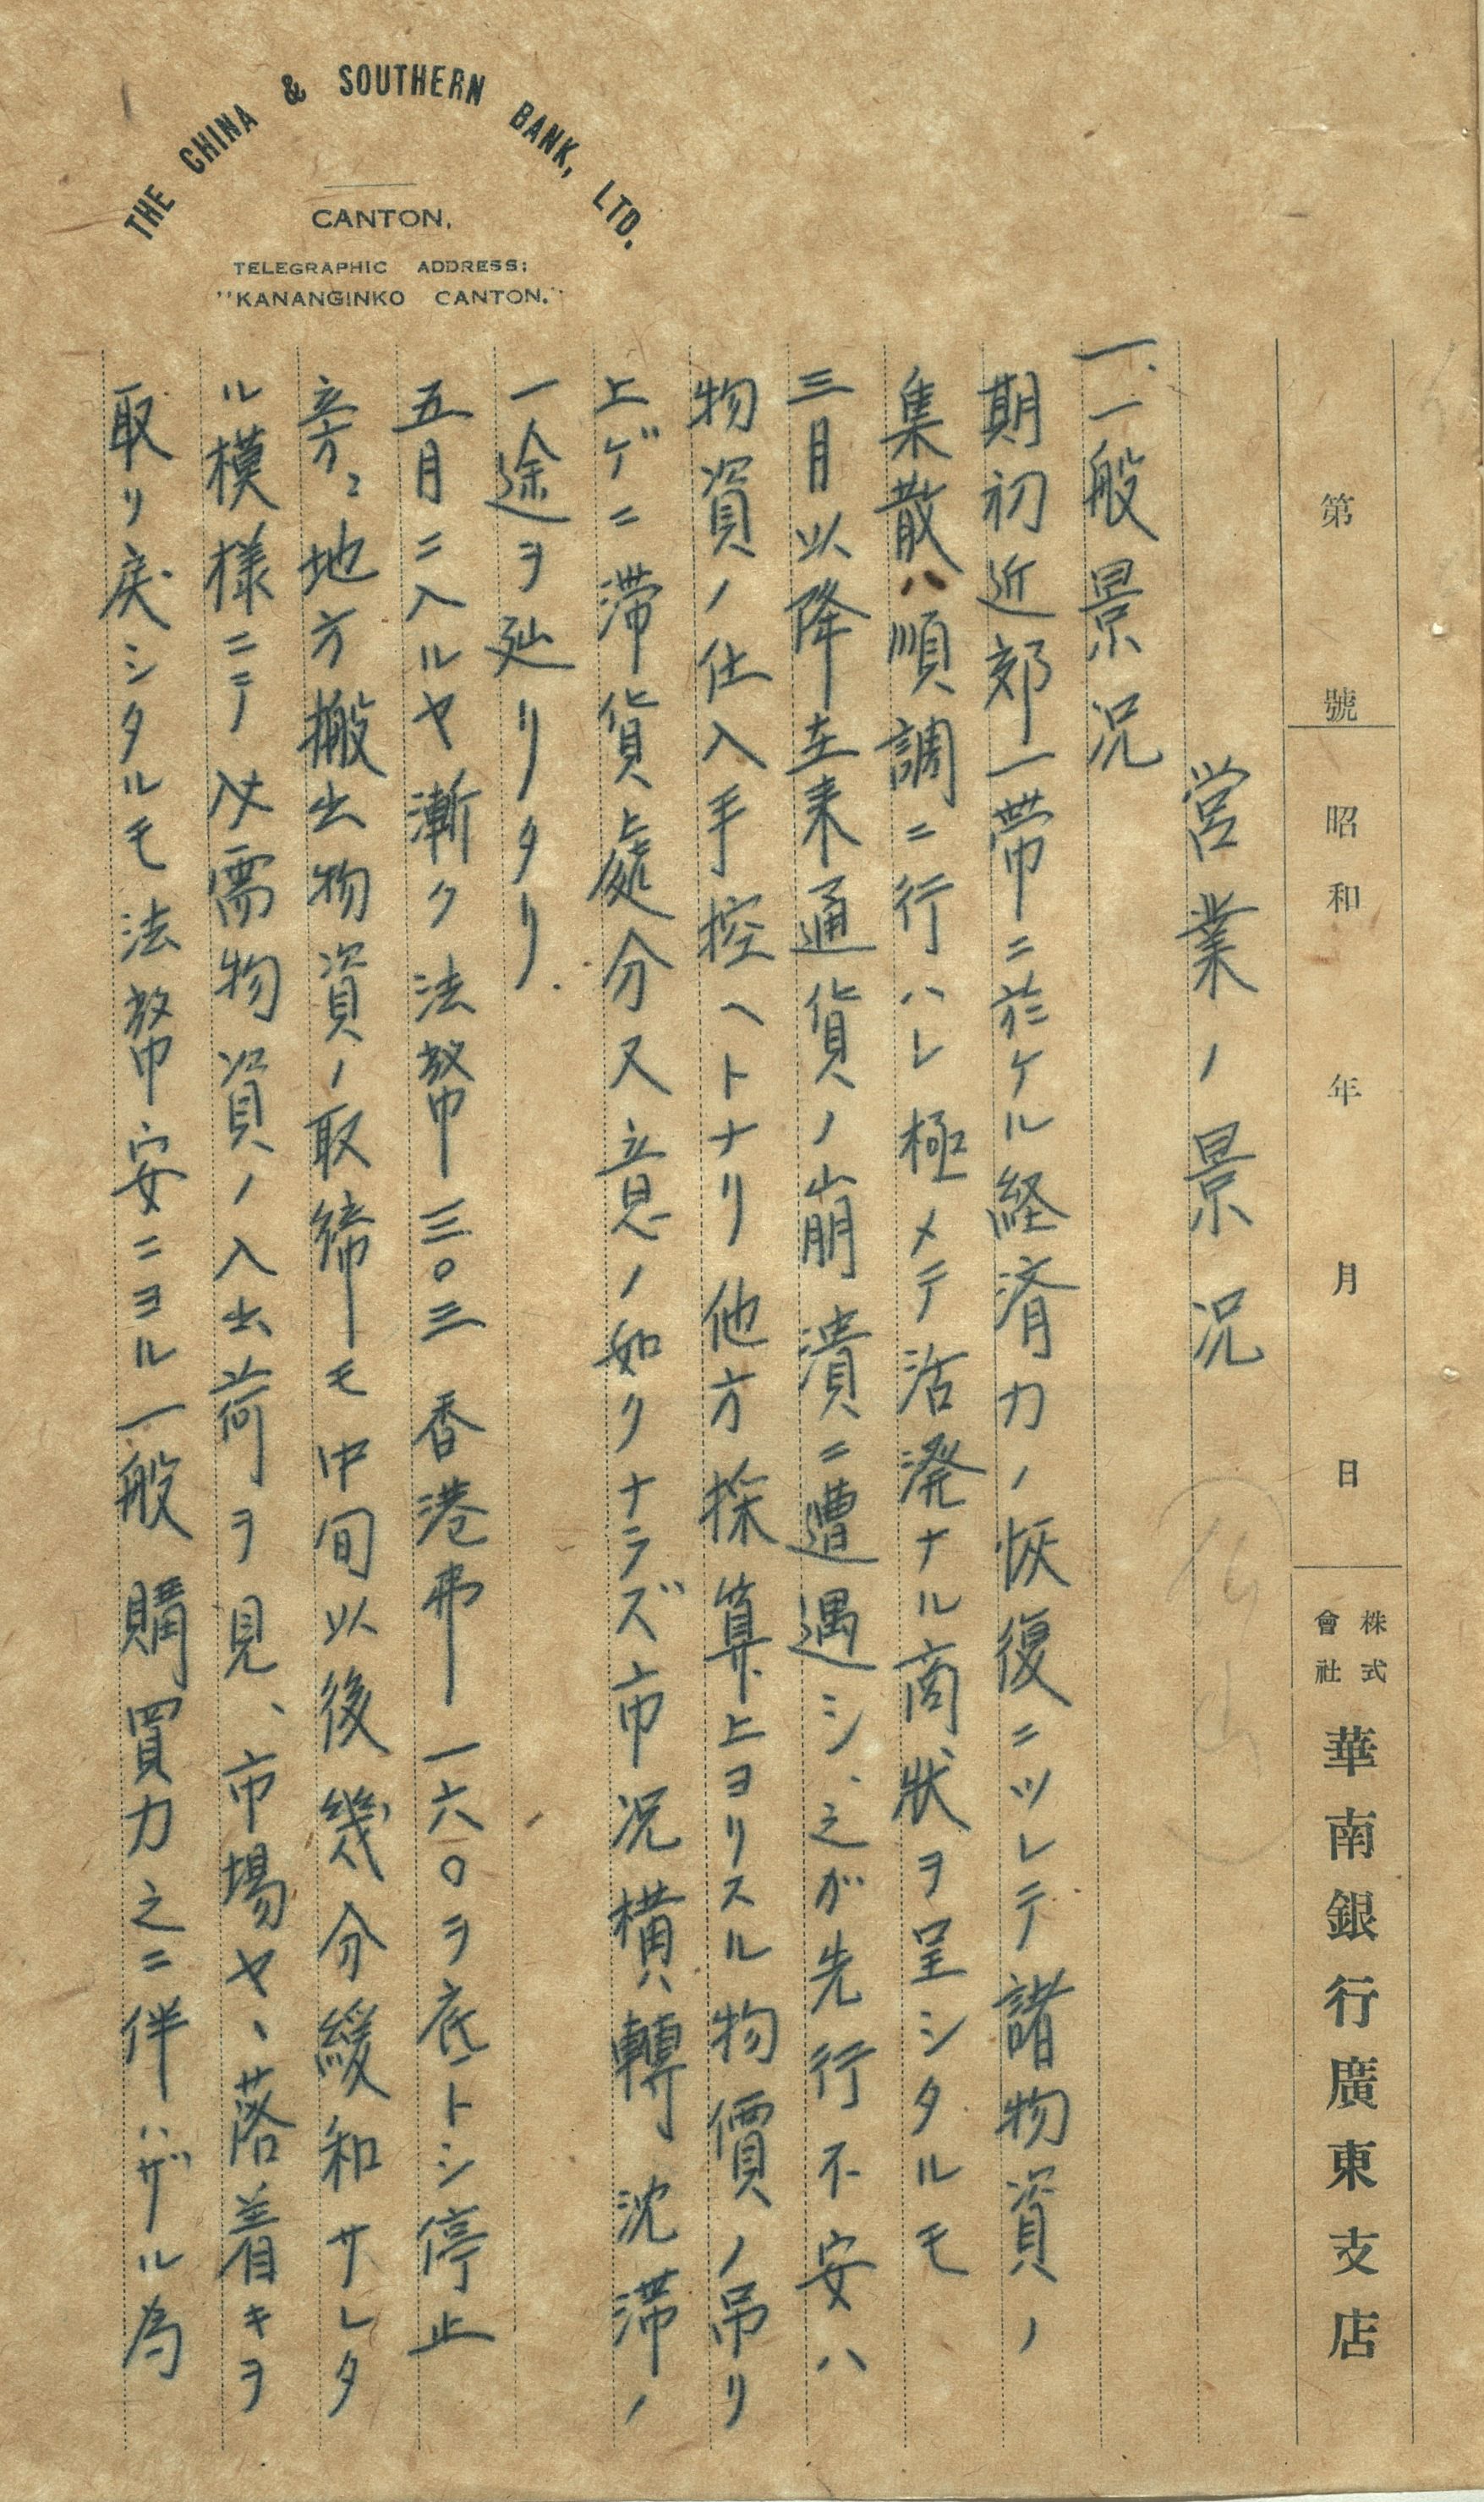 THE CHINA & SOUTHERN BANK, LTD.
CANTON.
TELEGRAPHIC ADDRESS:
"KANANGINKO CANTON."
第 號 昭和 年 月 日 株式會社 華南銀行廣東支店
営業ノ景況
一、一般景況
期初近郊一帯ニ於ケル経済力ノ恢復ニツレテ諸物資ノ
集散ハ順調ニ行ハレ極メテ活溌ナル商状ヲ呈シタルモ
三月以降在来通貨ノ崩潰ニ遭遇シ、之が先行不安ハ
物資ノ仕入手控ヘトナリ他方採算上ヨリスル物價ノ吊リ
上ゲニ滞貨處分又意ノ如クナラズ市况横轉沈滞ノ
一途ヲ辿リタリ.
五月ニ入ルヤ漸ク法幣三〇三香港弗一六〇ヲ底トシ停止
旁々地方搬出物資ノ取締モ中旬以後幾分緩和サレタ
ル模様ニテ必需物資ノ入出荷ヲ見、市場ヤヽ落着キヲ
取リ戻シタルモ法幣安ニヨル一般購買力之ニ伴ハザル為